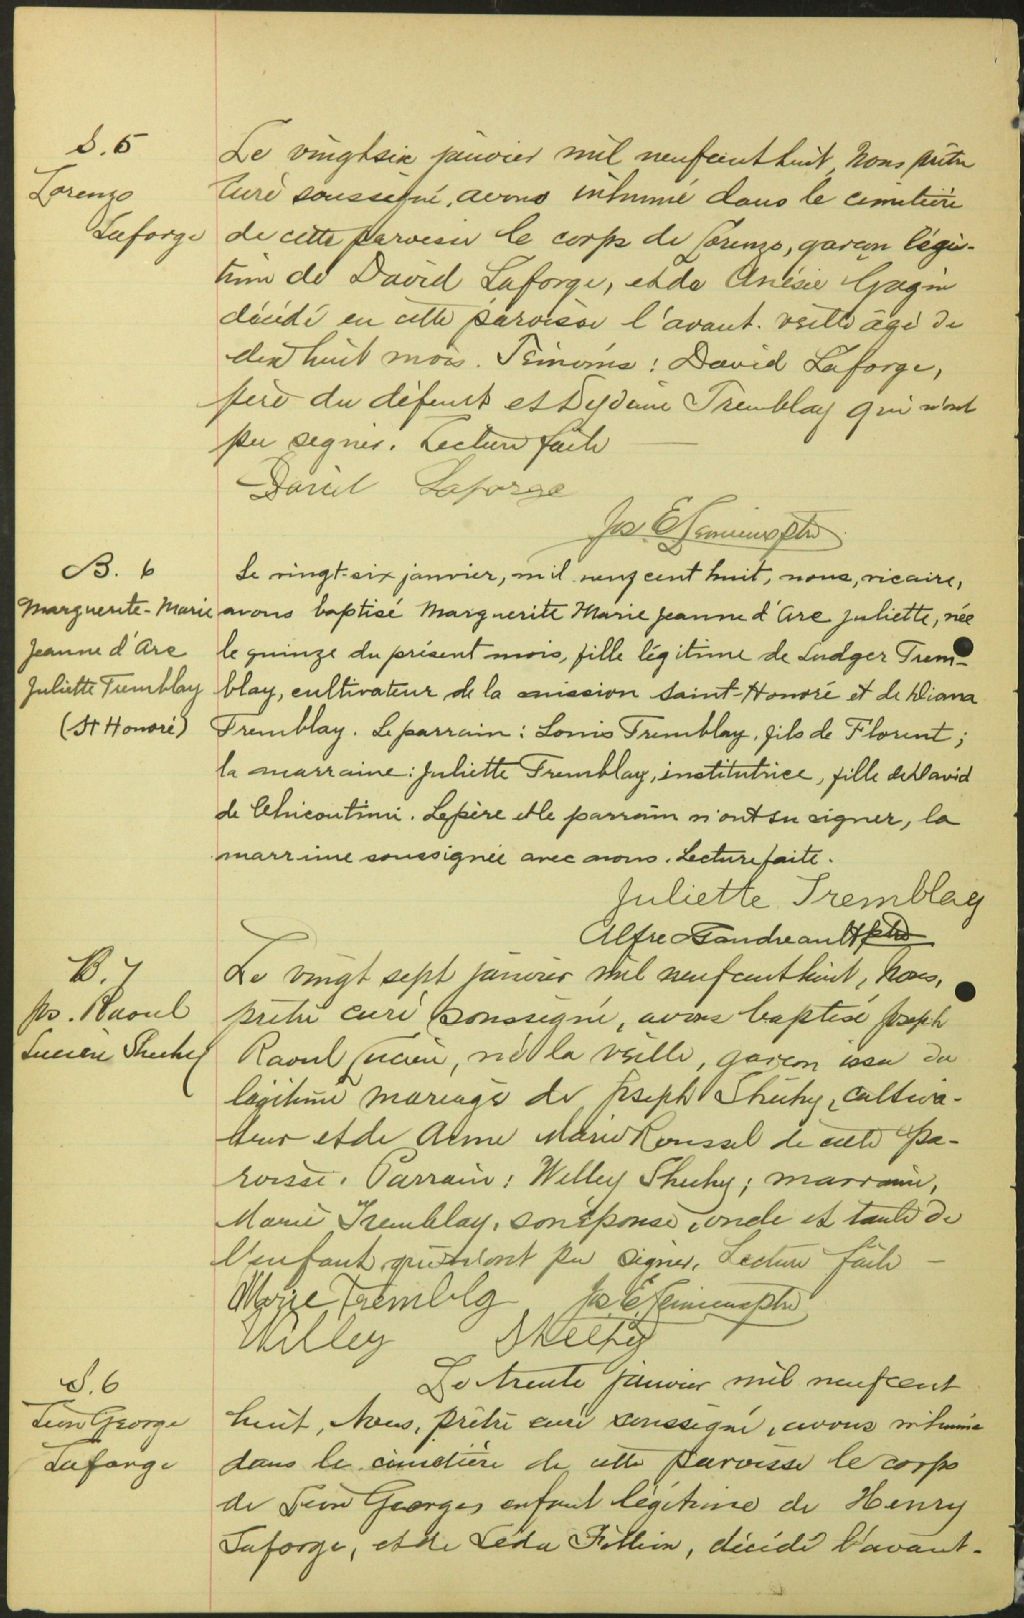 S. 5
Lorenzo
Laforge
Le vingtsix janvier mil neufcent huit, Nous prêtre
curé soussigné, avons inhumé dans le cimetière
de cette paroisse le corps de Lorenzo, garçon légi-
time de David Laforge, et de Anésie Gagné
décédé en cette paroisse l'avant-veille âgé de
dix huit mois. Témoins : David Laforge,
père du défunt et Tremblay qui n'ont
pu signer. Lecture faite
David Laforge
Jos E Lemieux ptre
B. 6
Marguerite-Marie
Jeanne d'Arc
Juliette Tremblay
(St Honoré)
Le vingt-six janvier, mil neuf cent huit, nous, vicaire,
avons baptisé Marguerite Marie Jeanne d'Arc Juliette, née
le quinze du présent mois, fille légitime de Ludger Trem-
blay, cultivateur de la mission Saint-Honoré et de Diana
Tremblay. Le parrain : Louis Tremblay, fils de Florent ;
la marraine : Juliette Tremblay, institutrice, fille de David
de Chicoutimi. Le père et le parrain n'ont su signer, la
marraine soussignée avec nous. Lecture faite.
Juliette Tremblay
Alfred Gaudreault ptre
B. 7
Jos. Raoul
Lucien Sheehy
Le vingt sept janvier mil neufcent huit, Nous,
prêtre curé soussigné, avons baptisé Joseph
Raoul Lucien, né la veille, garçon issu du
légitime mariage de Joseph Sheehy, cultiva-
teur et de Anne Marie Roussel de cette pa-
roisse. Parrain : Willey Sheehy ; marraine,
Marie Tremblay, son épouse, oncle et tante de
l'enfant qui n'ont pu signer. Lecture faite –
Marie Tremblg Jos. E. Lemieux ptre
Willey Sheehy
S. 6
Léon George
Laforge
Le trente janvier mil neufcent
huit, Nous, prêtre curé soussigné, avons inhumé
dans le cimetière de cette paroisse le corps
de Léon Georges, enfant légitime de Henry
Laforge, et de Léda Fillion, décédé l'avant-